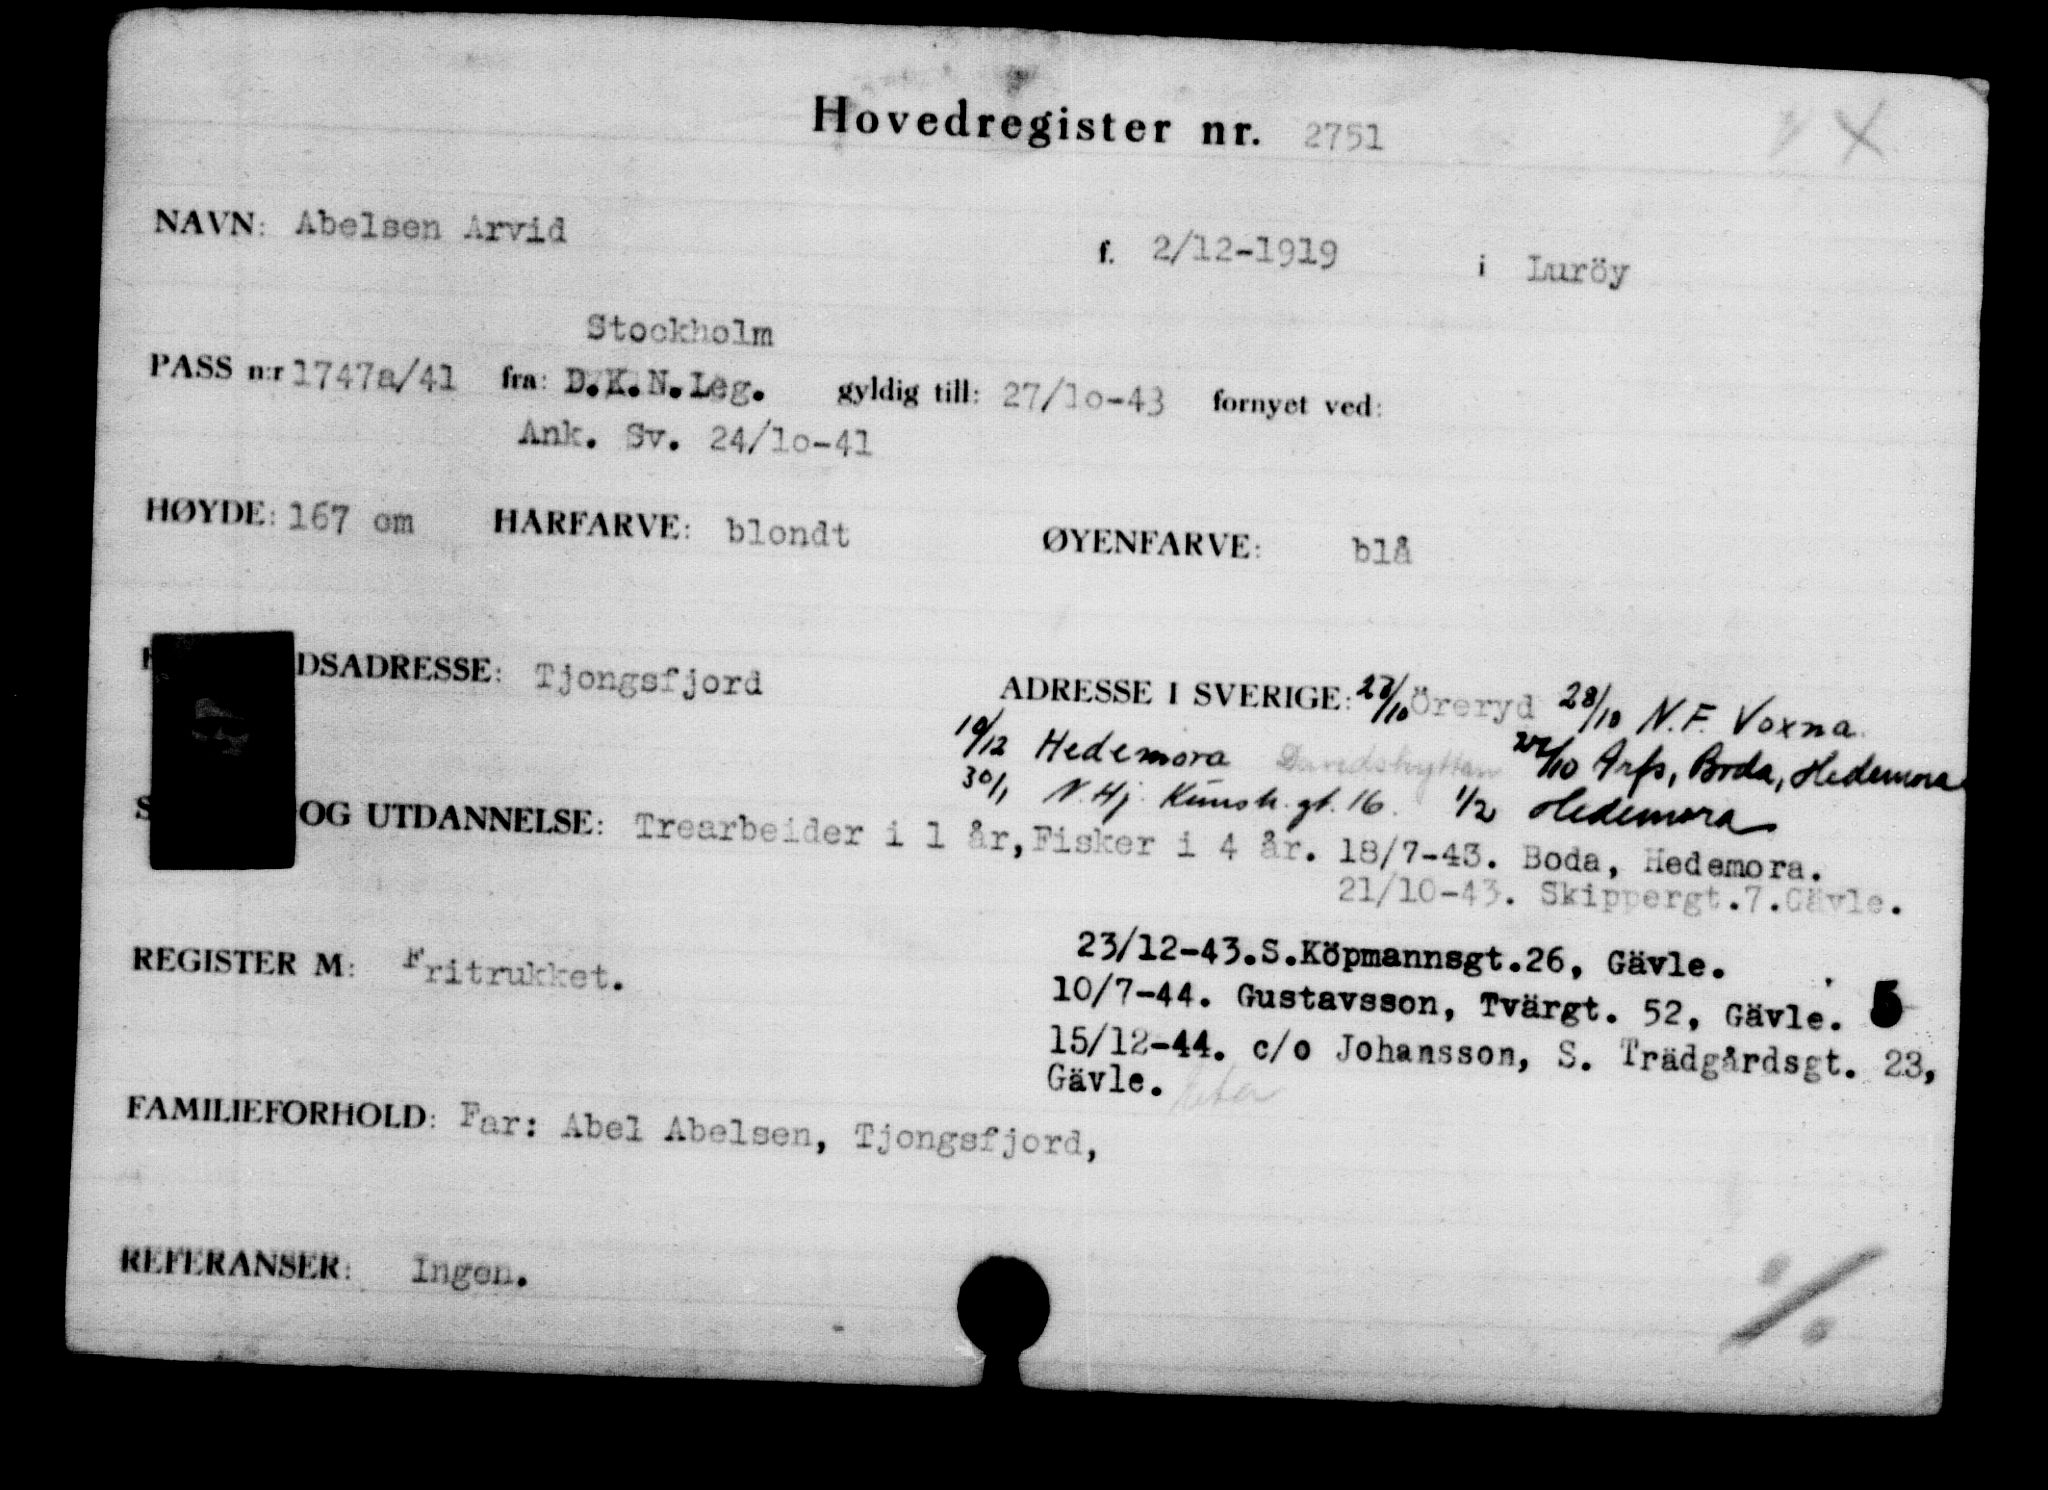 Hovedregister nr. 2751
NAVN: Abelsen Arvid f. 2/12-1919 i Luröy
Stockholm
PASS n:r 1747a/41 fra: D.K.N.Leg. gyldig till: 27/1o-43 fornyet ved:
Ank. Sv. 24/1o-41
HØYDE: 167 cm HÅRFARVE: blondt ØYENFARVE: blå
DSADRESSE: Tjongsfjord ADRESSE I SVERIGE: Öreryd 28/10 N.F. Voxna.
10/12 Hedemora Davidshyttan Boda, Hedemora
30/1 N.Hj. gt. 16. 1/2 Hedemora
S OG UTDANNELSE: Trearbeider i 1 år, Fisker i 4 år. 18/7-43. Boda, Hedemora.
21/10-43. Skippergt.7.Gävle.
REGISTER M: Fritrukket. 23/12-43.S.Köpmannsgt.26, Gävle.
10/7-44. Gustavsson, Tvärgt. 52, Gävle. 5
15/12-44. c/o Johansson, S. Trädgårdsgt. 23,
Gävle.
FAMILIEFORHOLD: Far: Abel Abelsen, Tjongsfjord,
REFERANSER: Ingen.